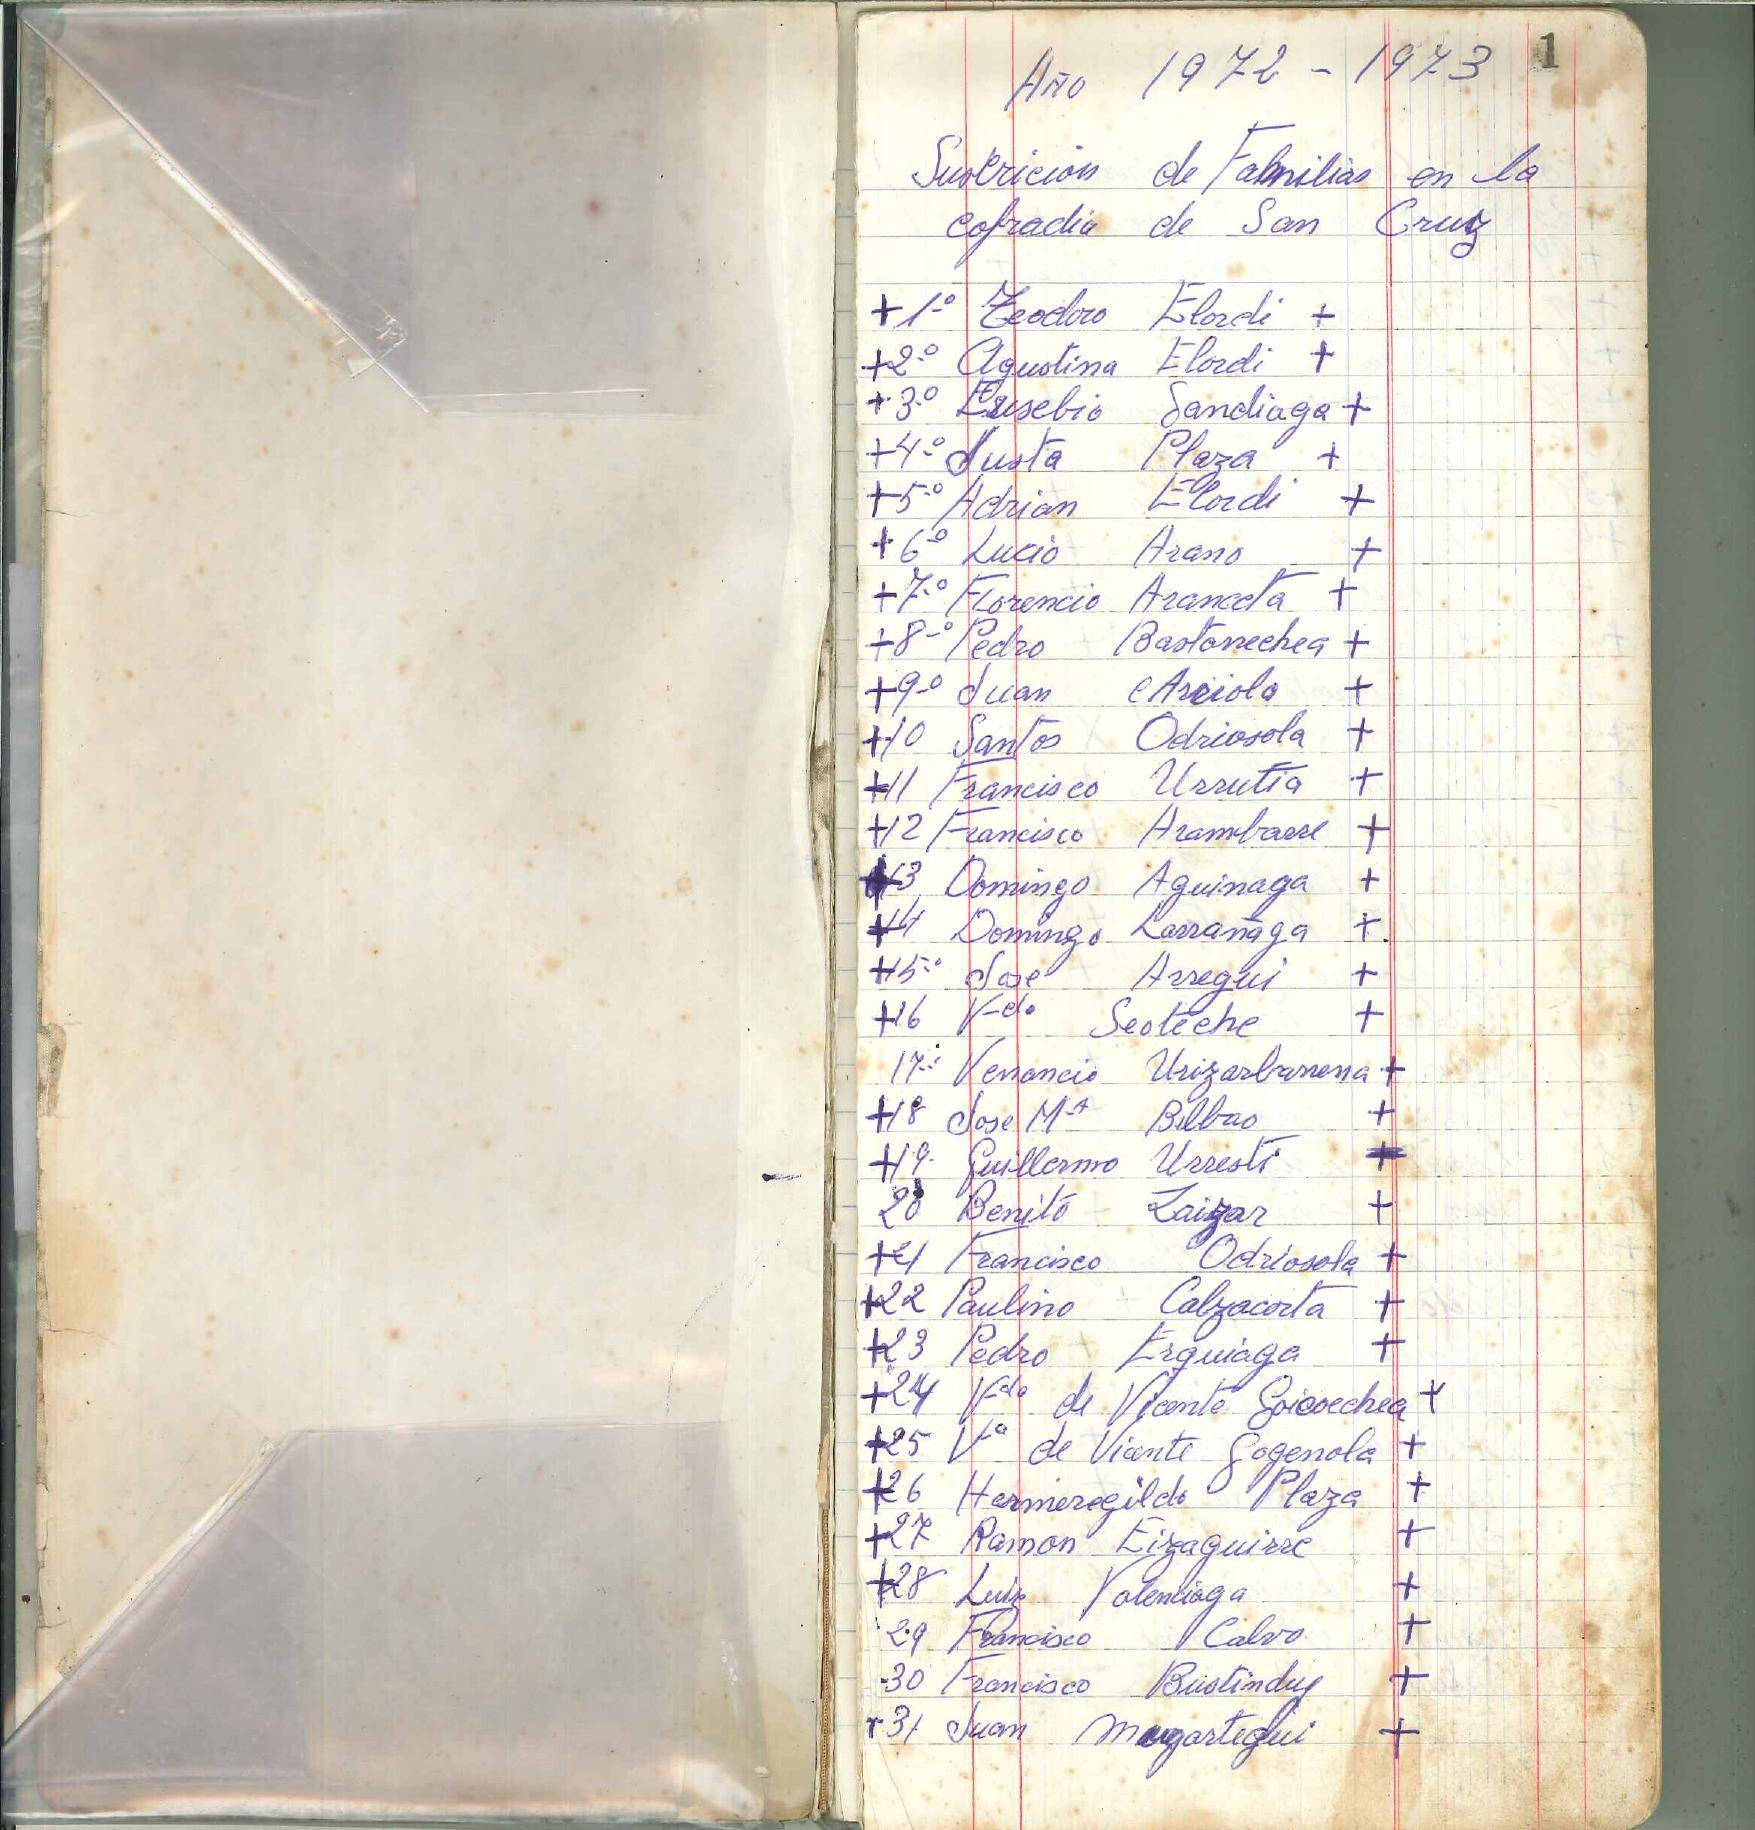 1
Año 1972 - 1973
Suscricion de Familias en la
cofradia de San Cruz
+ 1.º Teodoro Elordi +
+ 2.º Agustina Elordi +
+ 3.º Eusebio Sandiaga +
+ 4.º Justa Plaza +
+ 5.º Adrian Elordi +
+ 6.º Lucio Arano +
+ 7.º Florencio Aranceta +
+ 8.º Pedro Bastarrechea +
+ 9.º Juan Arriola +
+ 10 Santos Odriosola +
+ 11 Francisco Urrutia +
+ 12 Francisco Arambarre +
+ 13 Domingo Aguinaga +
+ 14 Domingo Larrañaga +.
+ 15.º Jose Arregui +
+ 16 V-do Seoteche +
17 Venancio Urizarbarrena +
+ 18 Jose M-ª Bilbao +
+ 19 Guillermo Urresti +
20 Benito Laizar +
+ 21 Francisco Odriosola +
+ 22 Paulino Calzacorta +
+ 23 Pedro Erquiaga +
+ 24 V-da de Vicente Goicoechea +
+ 25 V-a de Vicente Gogenola +
+ 26 Hermeregildo Plaza +
+ 27 Ramon Eizaguirre +
+ 28 Luis Valenciaga +
29 Francisco Calvo +
30 Francisco Bustinduy +
+ 31 Juan Mugartegui +